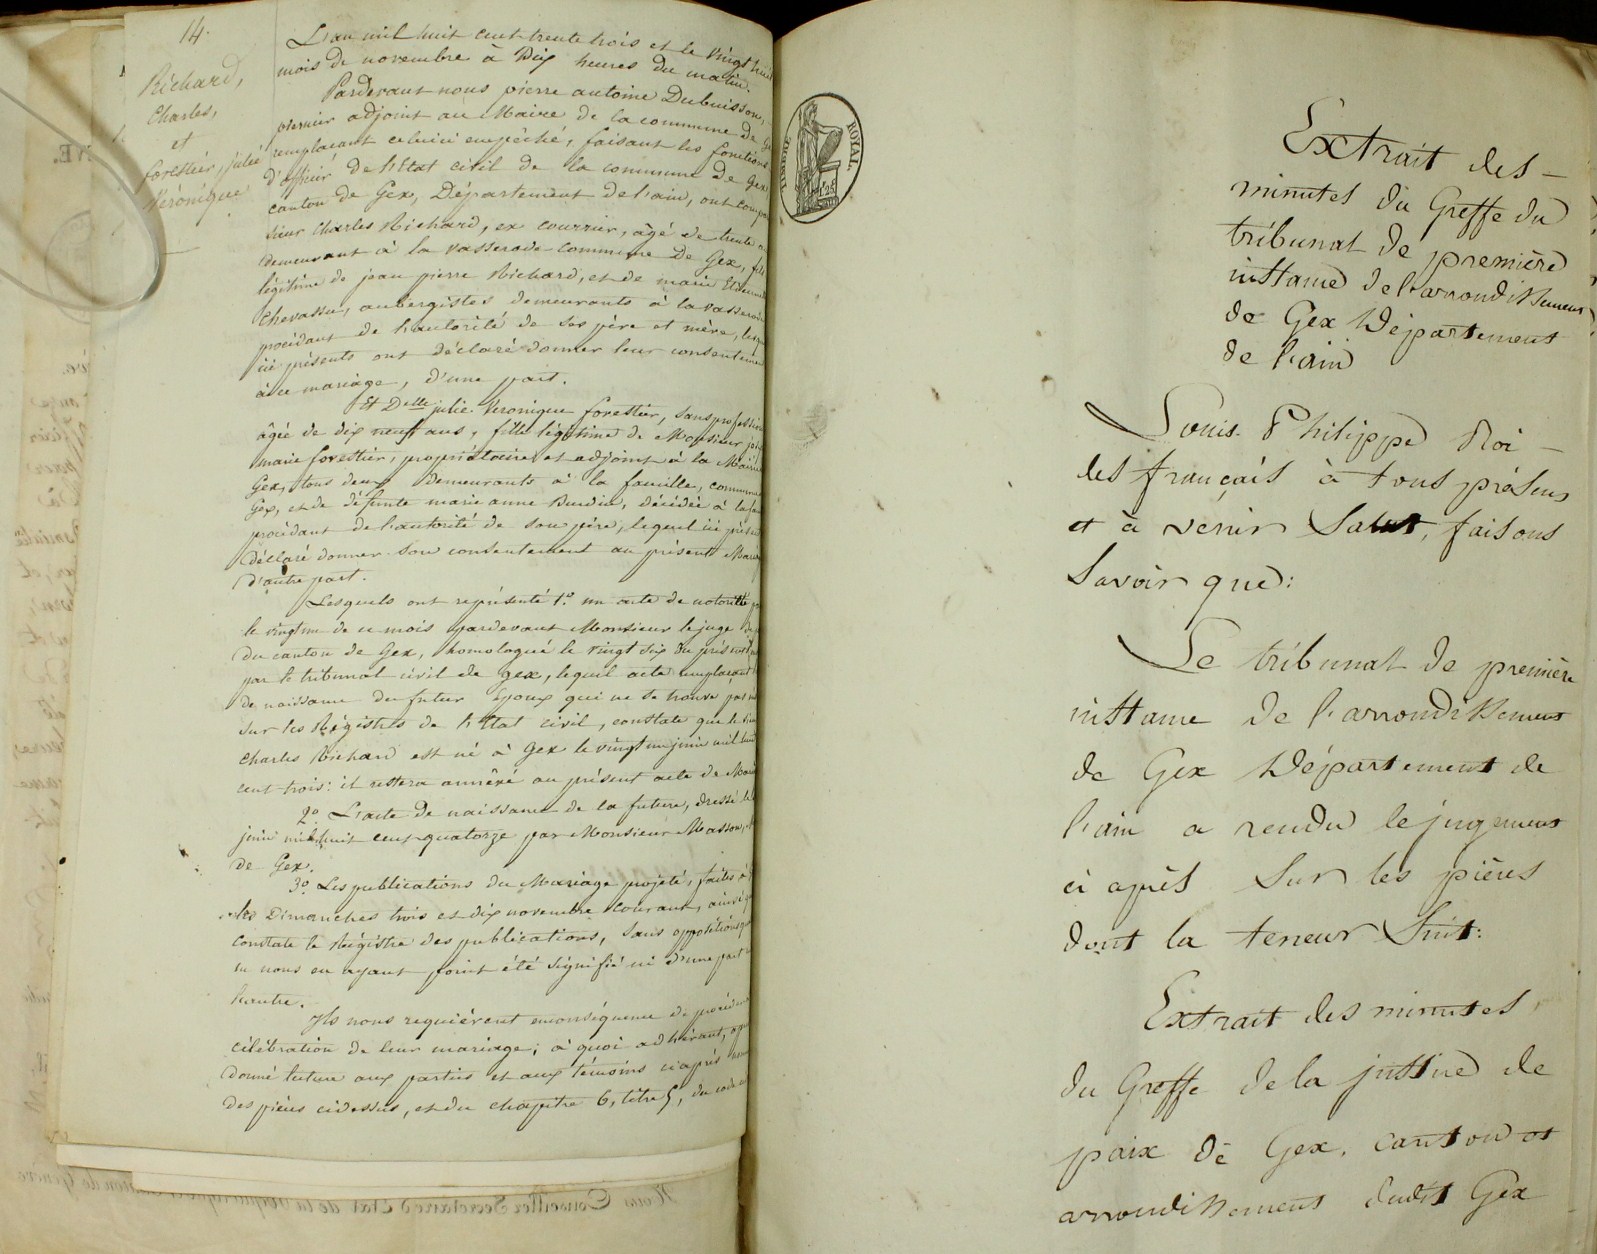 14.
Richard,
Charles,
et
forestier, julie
Véronique
L'an mil huit cent trente trois et le vingt huit
mois de novembre à Dix heures du matin.
Pardevant nous pierre antoine Dubuisson,
premier adjoint au Maire de la commune de Gex
remplaçant celuici empêché, faisant les fonctions
d'officier de l'Etat civil de la commune de Gex
canton de Gex, Département de l'ain, ont comparu
sieur Charles Richard, ex courrier, âgé de trente a
demeurant à la vasserode commune de Gex, fils
légitime de jean pierre Richard, et de marie Etiennette
Chevassu, aubergistes demeurants à la vasserode
procédant de l'autorité de ses père et mère, lesqu
ici présents ont déclaré donner leur consentement
à ce mariage, d'une part.
Et Delle julie Veronique forestier, sans profession
âgée de dix neuf ans, fille légitime de Monsieur
marie forestier, propriétaire et adjoint à la Mairie
Gex, tous deux demeurants à la faucille, commune
Gex, et de défunte marie anne Burdin, décédée à la
procédant de l'autorité de son père, lequel ici présent
déclaré donner son consentement au présent Mariage
d'autre part.
Lesquels ont représenté 1.º un acte de notoriété
le vingt un de ce mois pardevant Monsieur le juge de
du canton de Gex, homologué le vingt six du présent
par le tribunal civil de gex, lequel acte remplaçant
de naissance du futur Epoux qui ne se trouve pas
sur les Régistres de l'Etat civil, constate que le
Charles Richard est né à Gex le vingt un juin mil huit
cent trois: il restera annéxé au présent acte de Mari
2º L'acte de naissance de la future, dressé le
juin mil huit cent quatorze par Monsieur Masson,
de Gex.
3º Les publications du Mariage projeté, faites à
les Dimanches trois et dix novembre courant, ainsi
constate le Régistre des publications, sans opposition
nous en ayant point été signifié ni d'une part
l'autre.
Ils nous requiérent en conséquence de procéder
célébration de leur mariage; à quoi adhérant,
donné lecture aux parties et aux témoins ci après
des piéces cidessus, et du chapitre 6, titre 5, du code
TIMBRE ROYAL
Extrait des
minutes du Greffe du
tribunal de première
instance de l'arrondissement
de Gex Département
de l'ain
Louis Philippe Roi
des français à tous présens
et à venir Salut, faisons
Savoir que:
Le tribunal de première
instance de l'arrondissement
de Gex Département de
l'ain a rendu le jugement
ci après Sur les pièces
dont la teneur Suit:
Extrait des minutes
du Greffe de la justice de
paix de Gex, canton et
arrondissement dudit Gex
Nous Conseiller Secretaire d'Etat de la République